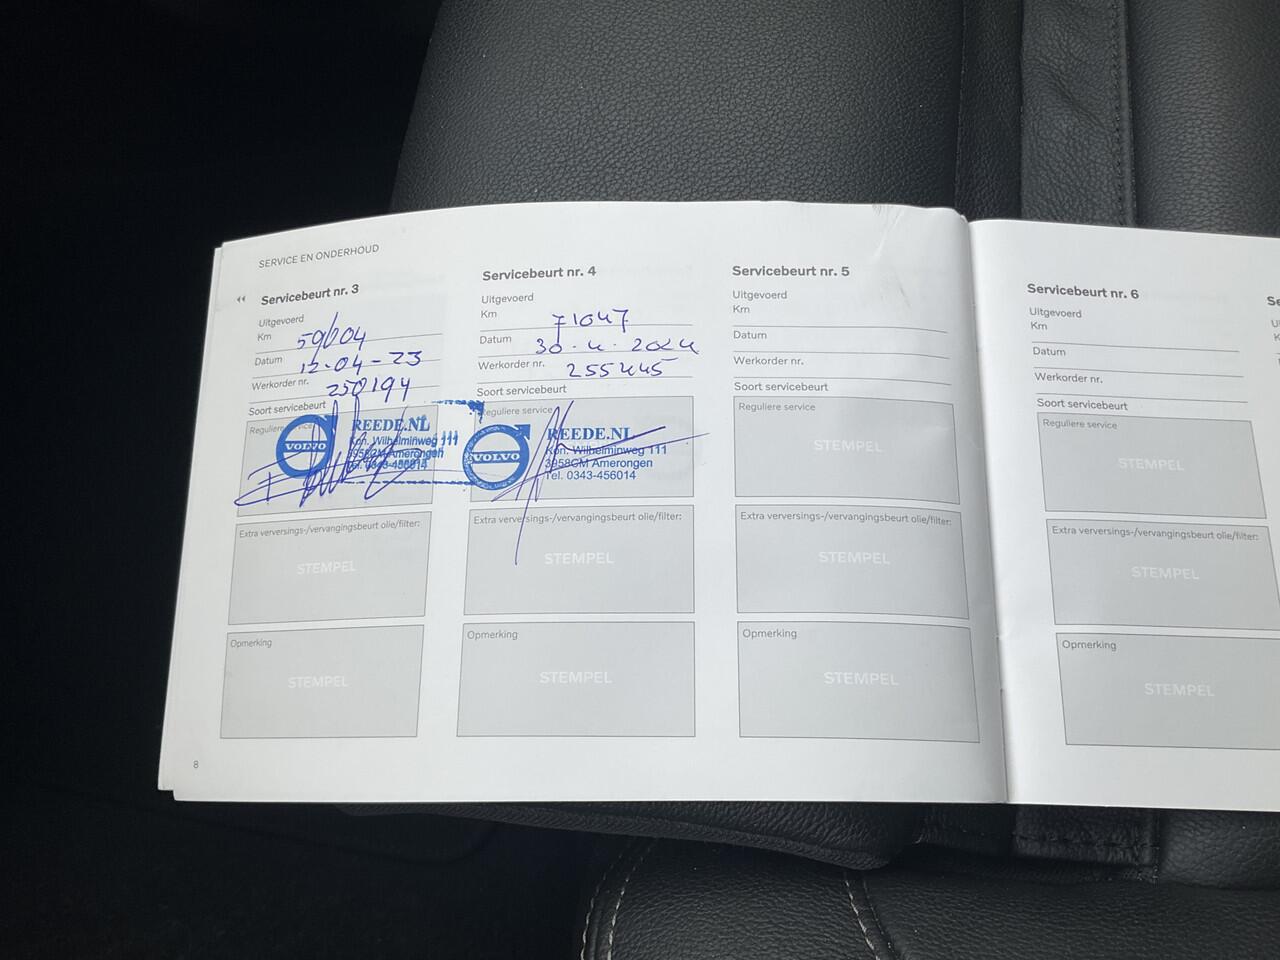 SERVICE EN ONDERHOUD
Servicebeurt nr. 3
Uitgevoerd
Km
Datum 12-04-23
Werkorder nr. 250194
Soort servicebeurt
VOLVO
REEDE.NL
Kon. Wilhelminweg 111
3958GM Amerongen
Extra verversings-/vervangingsbeurt olie/filter:
STEMPEL
Opmerking
STEMPEL
8
Servicebeurt nr. 4
Uitgevoerd
Km 71047
Datum 30-4-2024
Werkorder nr. 255445
Soort servicebeurt
Reguliere service
VOLVO
REEDE.NL
Kon. Wilhelminweg 111
3958GM Amerongen
Tel. 0343-456014
Extra verversings-/vervangingsbeurt olie/filter:
STEMPEL
Opmerking
STEMPEL
Servicebeurt nr. 5
Uitgevoerd
Km
Datum
Werkorder nr.
Soort servicebeurt
Reguliere service
STEMPEL
Extra verversings-/vervangingsbeurt olie/filter:
STEMPEL
Opmerking
STEMPEL
Servicebeurt nr. 6
Uitgevoerd
Km
Datum
Werkorder nr.
Soort servicebeurt
Reguliere service
STEMPEL
Extra verversings-/vervangingsbeurt olie/filter:
STEMPEL
Opmerking
STEMPEL